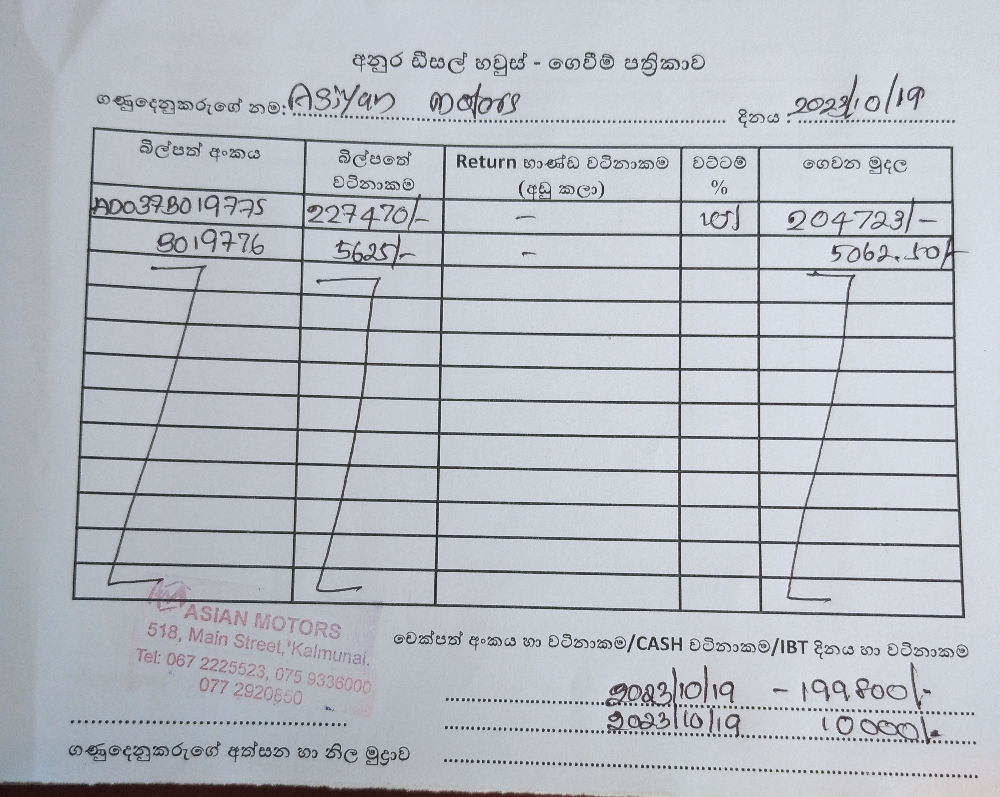 අනුර ඩීසල් හවුස් - ගෙවීම් පත්‍රිකාව
ගණුදෙනුකරුගේ නම: Asiyan motors දිනය : 2023/10/19
බිල්පත් අංකය බිල්පතේ වටිනාකම Return භාණ්ඩ වටිනාකම (අඩු කලා) වට්ටම් % ගෙවන මුදල
AD037B019775 227470/- – 10% 204723/-
B019776 5625/- – 5062.50/-
ASIAN MOTORS
518, Main Street, Kalmunai.
Tel: 067 2225523, 075 9336000
077 2920850
චෙක්පත් අංකය හා වටිනාකම/CASH වටිනාකම/IBT දිනය හා වටිනාකම
2023/10/19 - 199800/-
2023/10/19 10000/-
ගණුදෙනුකරුගේ අත්සන හා නිල මුද්‍රාව